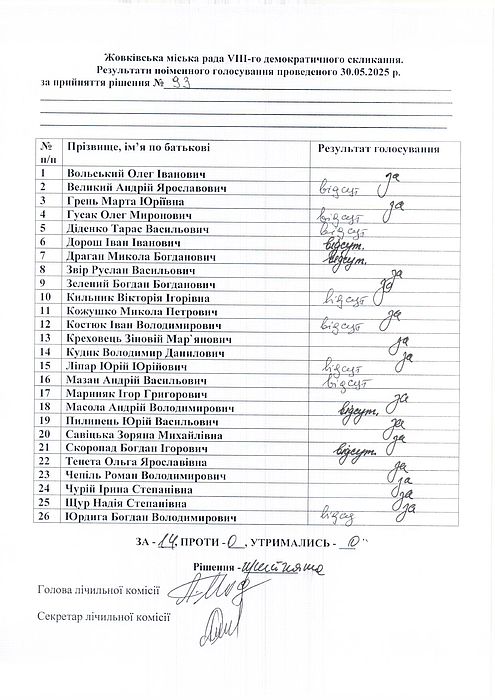 Жовківська міська рада VІІІ-го демократичного скликання.
Результати поіменного голосування проведеного 30.05.2025 р.
за прийняття рішення № 93
№ п/п Прізвище, ім’я по батькові Результат голосування
1 Вольський Олег Іванович за
2 Великий Андрій Ярославович відсут
3 Грень Марта Юріївна за
4 Гусак Олег Миронович відсут
5 Діденко Тарас Васильович відсут
6 Дорош Іван Іванович відсут.
7 Драган Микола Богданович відсут.
8 Звір Руслан Васильович за
9 Зелений Богдан Богданович за
10 Кильник Вікторія Ігорівна відсут
11 Кожушко Микола Петрович за
12 Костюк Іван Володимирович відсут
13 Креховець Зіновій Мар`янович за
14 Кудик Володимир Данилович за
15 Ліпар Юрій Юрійович відсут
16 Мазан Андрій Васильович відсут
17 Мариняк Ігор Григорович за
18 Масола Андрій Володимирович відсут.
19 Пилипець Юрій Васильович за
20 Савіцька Зоряна Михайлівна за
21 Скоропад Богдан Ігорович відсут.
22 Тенета Ольга Ярославівна за
23 Чепіль Роман Володимирович за
24 Чурій Ірина Степанівна за
25 Щур Надія Степанівна за
26 Юрдига Богдан Володимирович відсут
ЗА - 14, ПРОТИ - 0, УТРИМАЛИСЬ - 0
Рішення - прийнято
Голова лічильної комісії
Секретар лічильної комісії